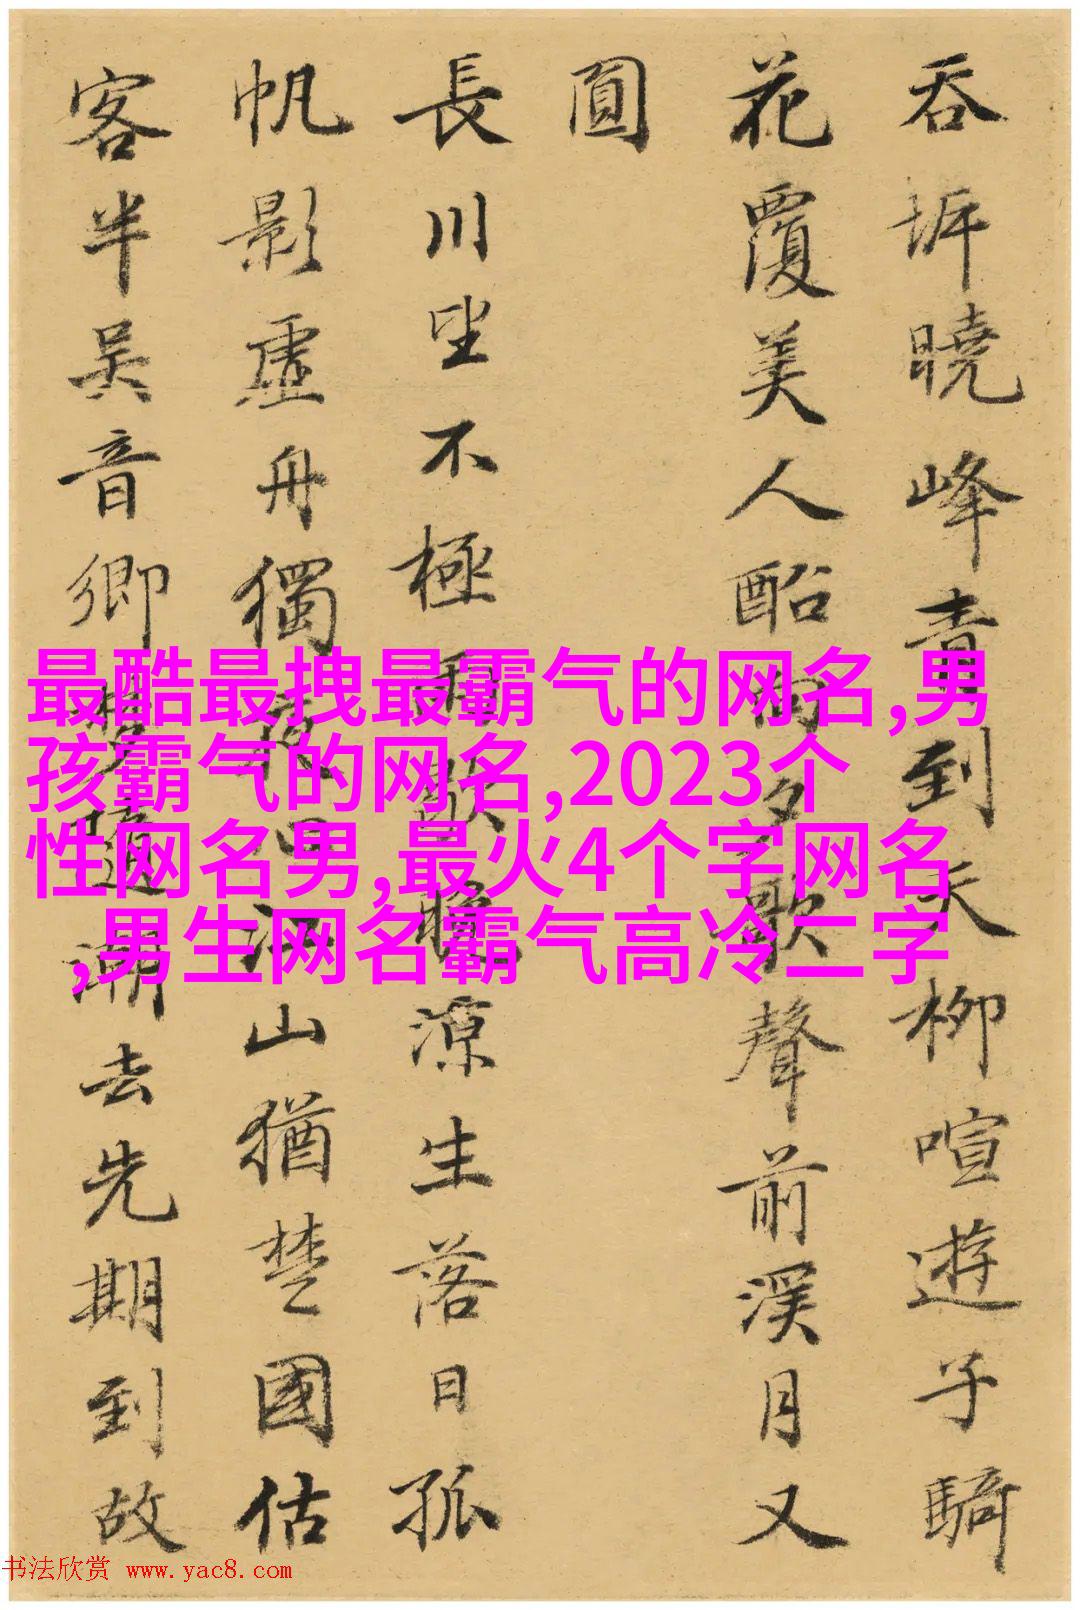 吞坼曉峰青到天柳喧遊子騎
花覆美人船向夕歌聲前溪月又
圓
長川坐不極雨歇晚涼生落日孤
帆影虛舟獨夜江山猶楚國估
客半吳音鄉夢隨潮去先期到故
最酷最拽最霸气的网名,男
孩霸气的网名,2023个
性网名男,最火4个字网名
,男生网名霸气高冷二字
书法欣赏 www.yac8.com